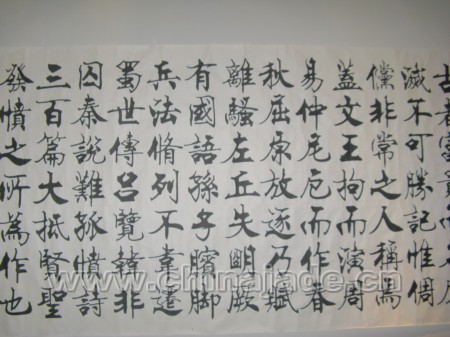 古者富貴而名摩
滅不可勝記惟倜
儻非常之人稱焉
蓋文王拘而演周
易仲尼厄而作春
秋屈原放逐乃賦
離騷左丘失朙厥
有國語孫子臏脚
兵法脩列不韋遷
蜀世傳呂覽韓非
囚秦說難孤憤詩
三百篇大抵賢聖
發憤之所為作也
www.chinajade.cn